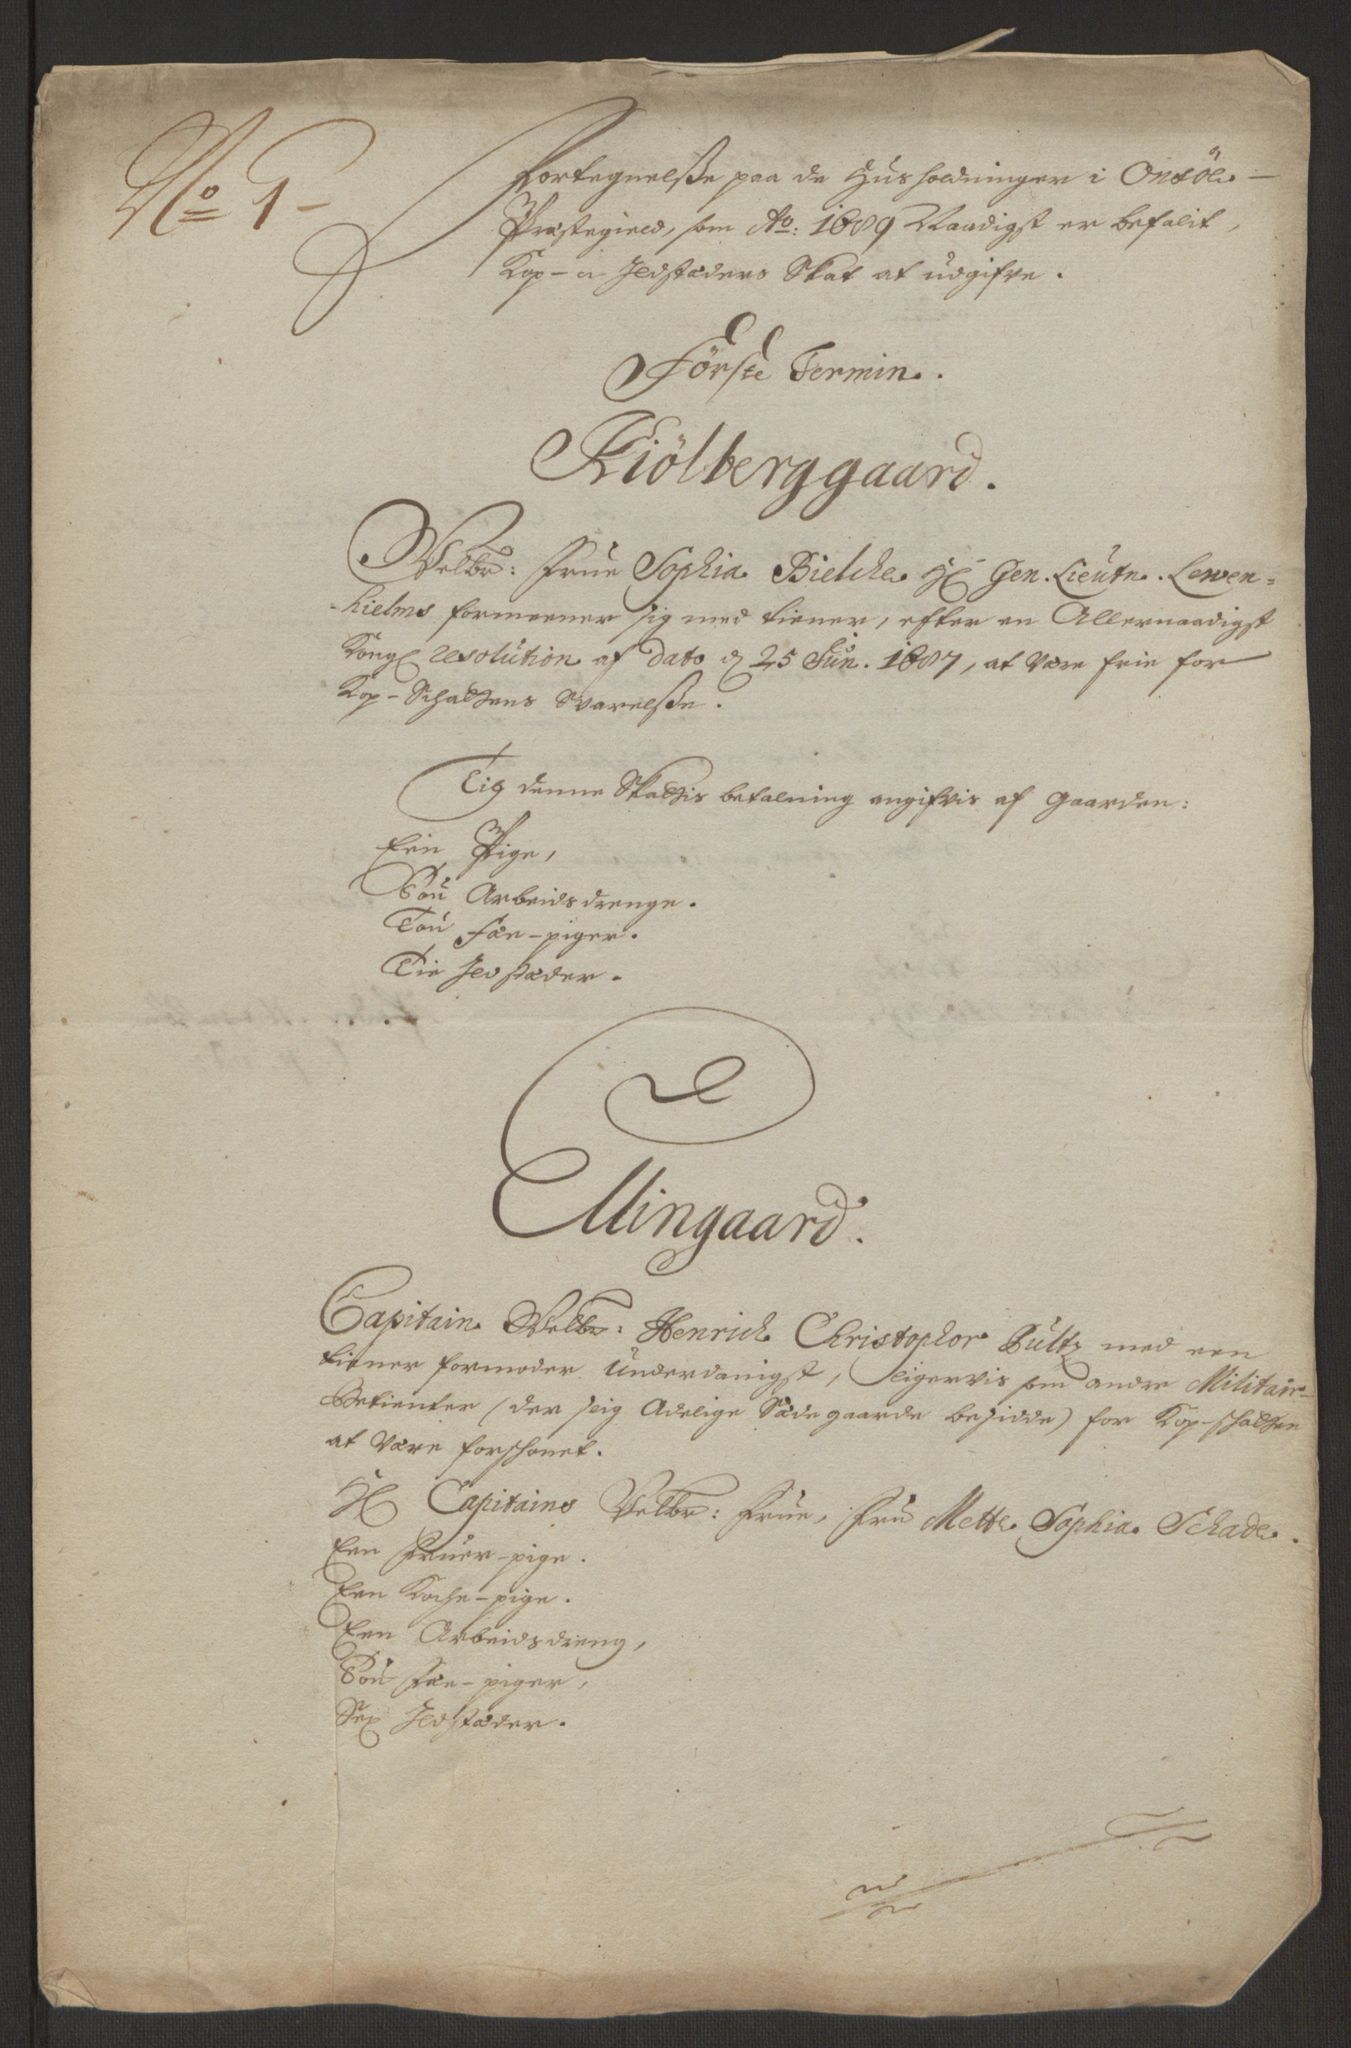 No 1
Fortegnelsse paa de Huusholdninger i Onsöe
Præstegield, som Ao: 1689 Naadigst er befalit,
Kop- a Jldstæders Skat at udgifve.
Förste Termin.
Kiölberggaard.
Velbr: Frue Sophia Bielche Hr Gen. Lieutn. Lewen=
hielms formeener sig med tiener, efter en Allernaadigst
Kongl resolution af dato d 25 Jun. 1687, at være frie for
Kop-Schattens Svarelsse.
Till denne Skattis betalning angifvis af gaarden:
Een Pige,
Tou Arbeidsdrenge.
Tou Fæe-piger.
Tie Jldstæder.
Ellingaard.
Capitain Velbr: Henrich Christophor Bültz med een
tiener formoder Underdanigst, ligervis som andre Militair
Betienter (der sig Adelige Sædegaarde besidde) for Kop-schatten
at være forschonet.
Hr Capitains Velbr: Frue, Fru Mette Sophia Schade.
Een Fruer-pige.
Een Koche-pige.
Een Arbeidsdreng,
Tou Fæe-piger,
Sex Jldstæder.